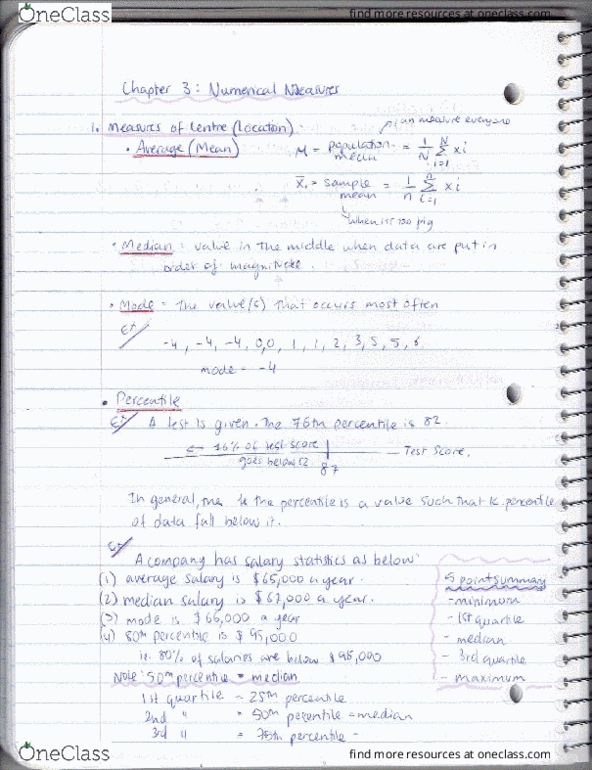 OneClass
find more resources at oneclass.com
Chapter 3: Numerical Measures
1. Measures of Centre (Location)
can measure everyone
• Average (Mean)
M = population mean = 1/N Σ i=1 N xi
x̄ = sample mean = 1/n Σ i=1 n xi
when it's too big
• Median: value in the middle when data are put in
order of magnitude.
• Mode = the value(s) that occurs most often
Ex
-4, -4, -4, 0, 0, 1, 1, 2, 3, 5, 5, 6
mode = -4
• Percentile
Ex A test is given. The 76th percentile is 82.
← 76% of test score
goes below 82
Test Score.
In general, the k the percentile is a value such that k percentile
of data fall below it.
Ex
A company has salary statistics as below:
(1) average salary is $65,000 a year.
(2) median salary is $67,000 a year.
(3) mode is $66,000 a year
(4) 80th percentile is $95,000
ie. 80% of salaries are below $95,000
Note: 50th percentile = median
1st quartile = 25th percentile
2nd " = 50th percentile = median
3rd " = 75th percentile =
5 point summary
- minimum
- 1st quartile
- median
- 3rd quartile
- maximum
OneClass
find more resources at oneclass.com